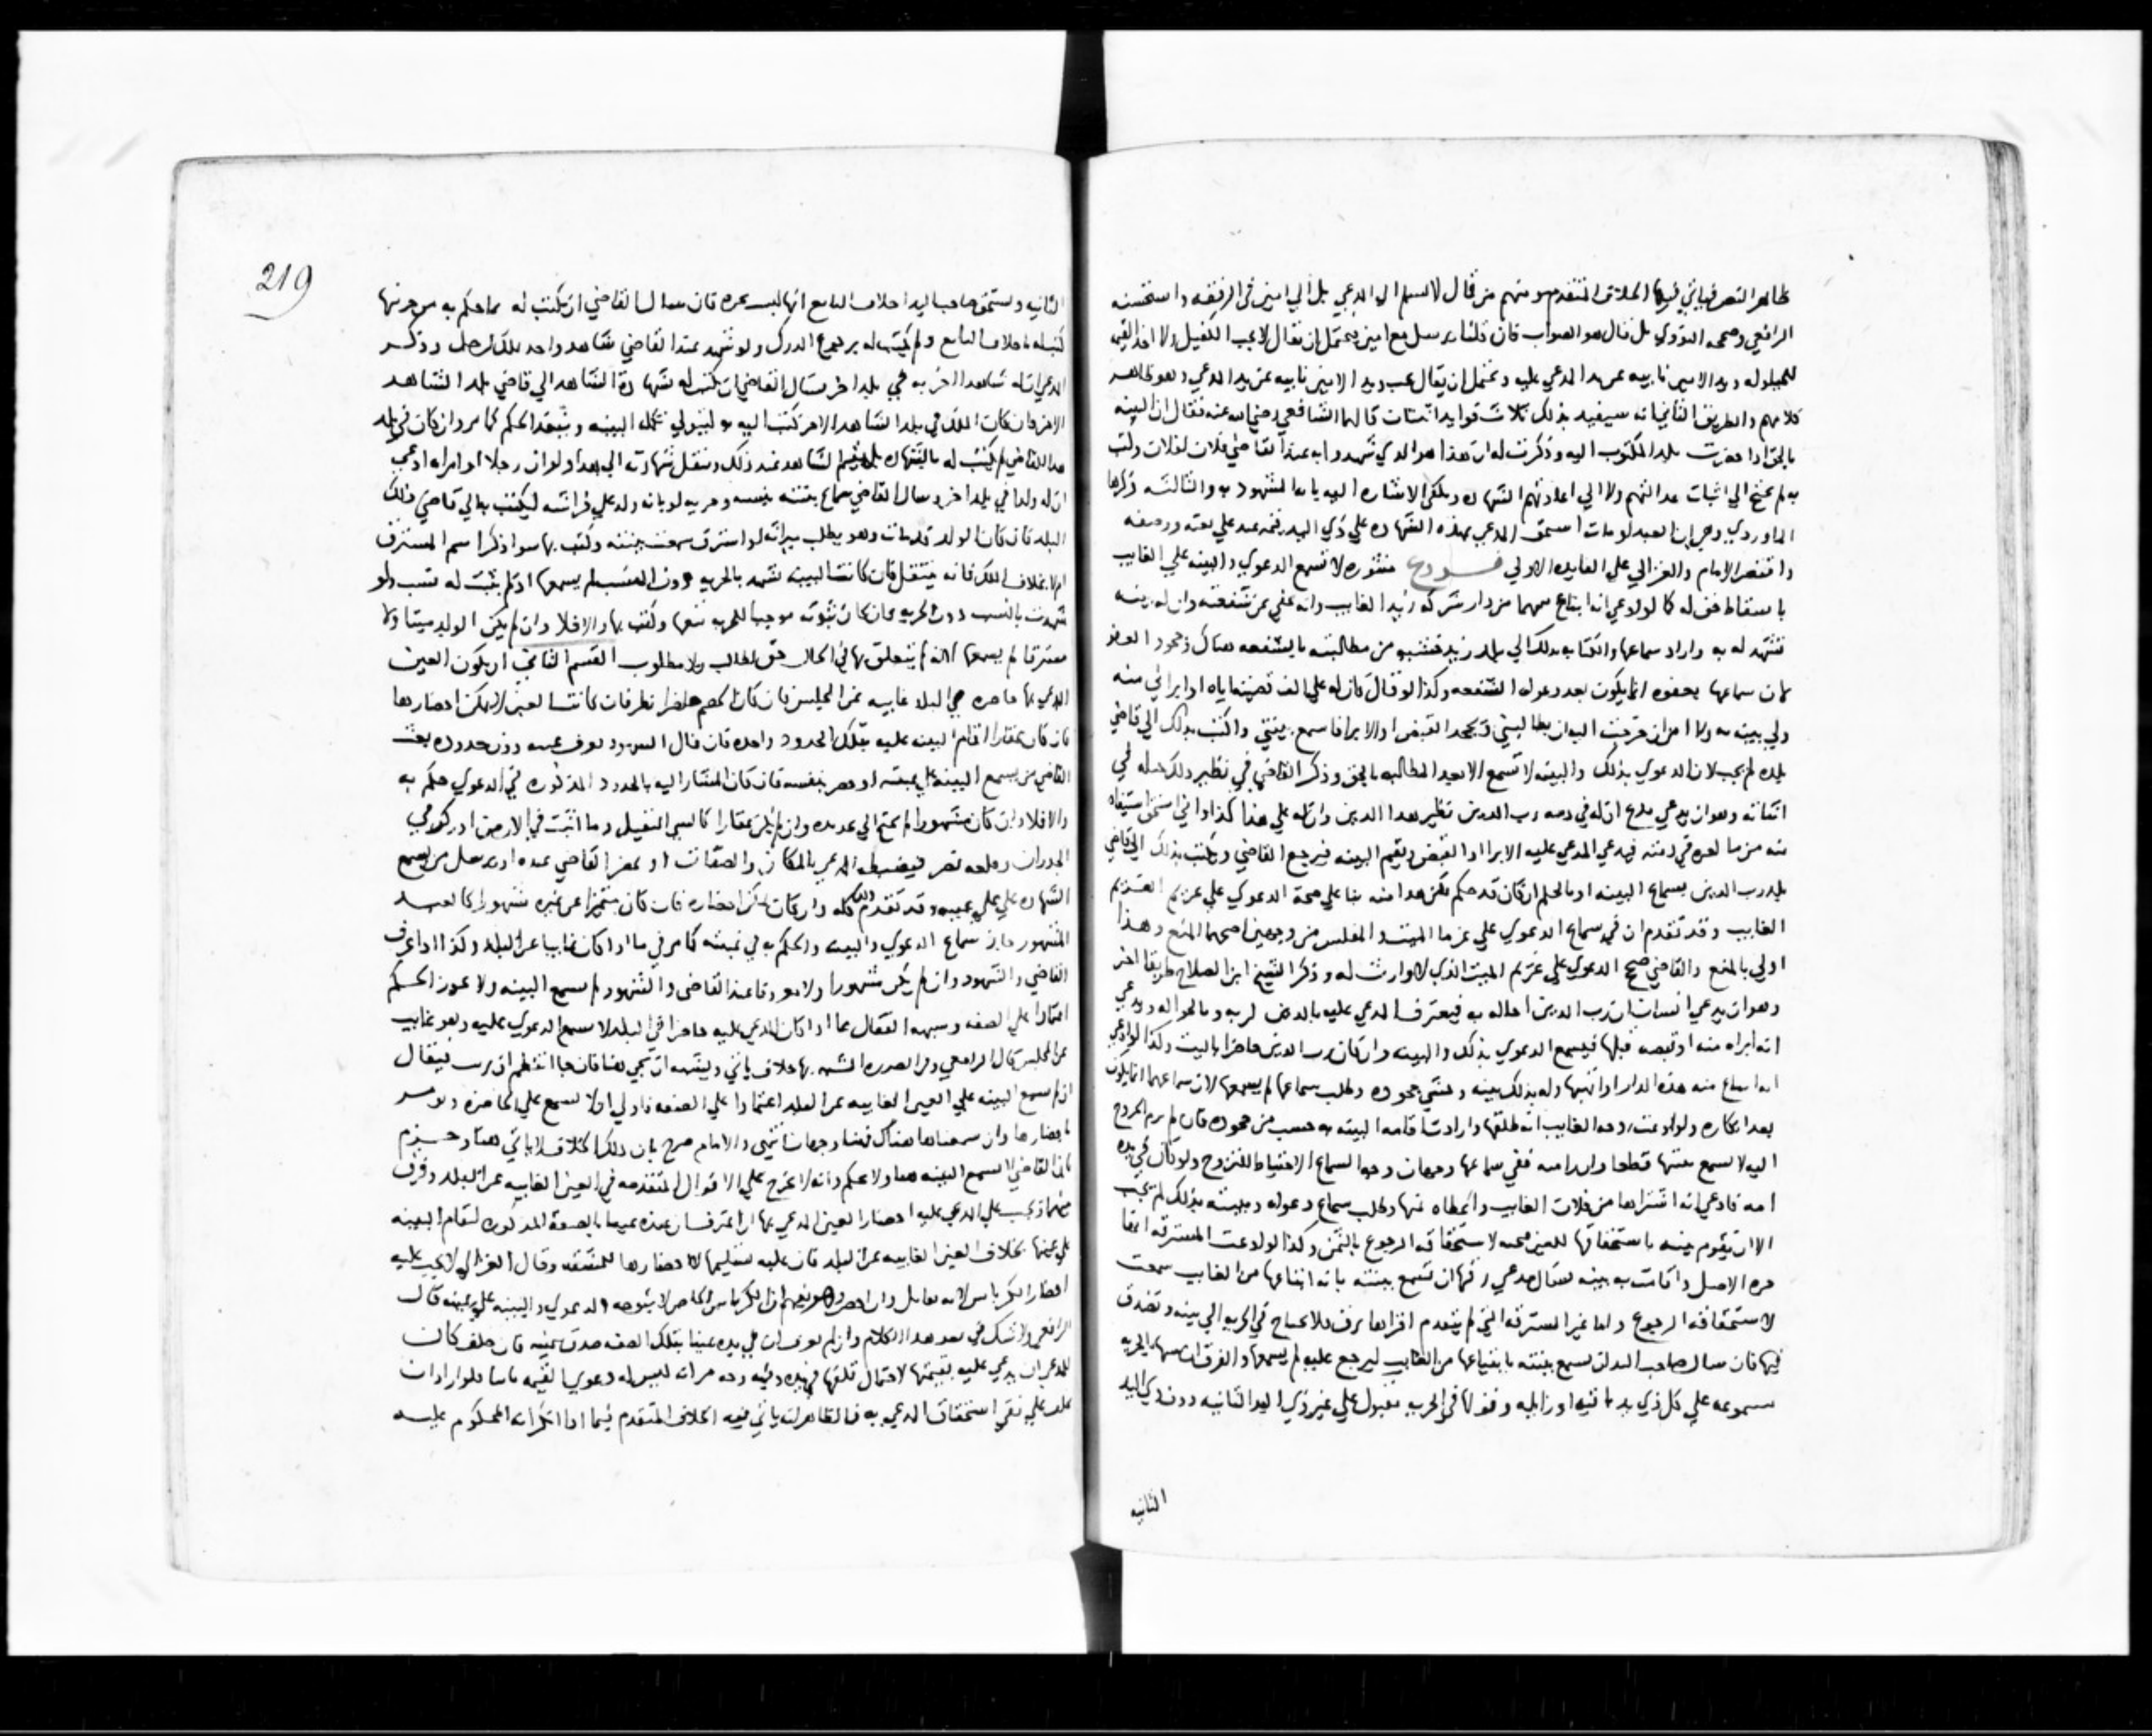 ظاهر النص فياتي فيها الخلاف المتقدم ومنهم من قال لا يسلم الى المدعي بل الى امين في الرفقه واستحسنه
الرافعي وصححه النووي بل قال هو الصواب فان قلنا يرسل مع امين فيحتمل ان يقال لا يجب الكفيل ولا اخذ القيمه
للحيلوله ويد الامين نايبه عن يد المدعي عليه ويحتمل ان يقال يجب ويد الامين نايبه عن يد المدعي وهو ظاهر
كلامهم والطريق الثاني انه سيفيد بذلك ثلاث فوايد اثنتان قالهما الشافعي رضي الله عنه فقال ان البينه
بالحق اذا حضرت بلد المكتوب اليه وذكرت له ان هذا هو الذي شهدوا به عند القاضي فلان لفلان وكتب
به لم يحتج الى اثبات عدالتهم ولا الى اعادتهم الشهاده ويكفي الاشاره اليه بانه المشهود به والثالثه ذكرها
الماوردي وهي ان العبد لو مات استحق المدعي بهذه الشهاده على ذي اليد قيمه عبد على نعته ووصفه
واقتصر الامام والغزالي على الفايده الاولى فروع منثوره لا تسمع الدعوى والبينه على الغايب
باسقاط حق له كما لو ادعى انه ابتاع سهما من دار شركه زيد الغايب وانه عفى عن شفعته وان له بينه
تشهد له به واراد سماعها والكتابه بذلك الى بلد زيد خشيه من مطالبته بالشفعه هناك وجحود العفو
لان سماعها بعفوه انما يكون بعد دعواه الشفعه وكذا لو قال كان له علي الف قضيتها اياه او ابراني منه
ولي بينه به ولا امن ان خرجت اليه ان يطالبني ويجحد القبض او الابرا فاسمع بينتي واكتب بذلك الى قاضي
بلده لم يجب لان الدعوى بذلك والبينه لا تسمع الا بعد المطالبه بالحق وذكر القاضي في نظير ذلك حيله في
اثباته وهو ان يدعي مدع ان له في ذمه رب الدين نظير هذا الدين وان له على هذا كذا واني استحق استيفاه
منه من ما لغريمي في ذمته فيدعي المدعي عليه الابرا او القبض ويقيم البينه فيرجع القاضي ويكتب بذلك الى قاضي
بلد رب الدين بسماع البينه او بالحكم ان كان قد حكم لكن هذا منه بنا على صحة الدعوى على غريم الغريم
الغايب وقد تقدم ان في سماع الدعوى على غرما الميت والمفلس من وجهين اصحهما المنع وهذا
اولى بالمنع والقاضي صحح الدعوى على غريم الميت الذي لا وارث له وذكر الشيخ ابن الصلاح طريقا اخر
وهو ان يدعي انسان ان رب الدين احاله به فيعترف المدعي عليه بالدين لربه وبالحواله ويدعي
انه ابراه منه او قبضه قبلها فيسمع الدعوى بذلك والبينه وان كان رب الدين حاضرا بالبلد وكذا لو ادعى
انه ابتاع منه هذه الدار او اتهبها وله بذلك بينه وخشي جحوده وطلب سماعها لم يسمعها لان سماعها انما يكون
بعد انكاره ولو ادعت زوجه الغايب انه طلقها وارادت اقامه البينه به حسبه من جحوده فان لم ترم الخروج
اليه لا تسمع بينتها قطعا وان رامته ففي سماعها وجهان وجه السماع الاحتياط للفروج ولو كان في يده
امه فادعى انه اشتراها من فلان الغايب واعطاه ثمنها وطلب سماع دعواه وبينته بذلك لم يجب
الا ان تقوم بينه باستحقاقها للعين فحينئذ لاستحقاقه الرجوع بالثمن وكذا لو ادعت المسترقه انها
حره الاصل واقامت به بينه فسال مدعي رقها ان تسمع بينته بانه ابتاعها من الغايب سمعت
لاستحقاقه الرجوع واما غير المسترقه التي لم يتقدم اقرارها برق فلا تحتاج في الحريه الى بينه وتصدق
فيها فان سال صاحب اليد ان تسمع بينته بابتياعها من الغايب ليرجع عليه لم يسمعها والفرق ان بينتها بالحريه
مسموعه على كل ذي يد ثانيه او زايله وقولها في الحريه مقبول على غير ذي اليد الثانيه دون ذي اليد
الثانيه
219
الثانيه ويستحق صاحب اليد احلاف البايع انها ليست بحره فان سال القاضي ان يكتب له بما حكم به من حريتها
كتب له باحلاف البايع ولم يكتب له برجوع الدرك ولو شهد عند القاضي شاهد واحد بملك لرجل وذكر
المدعي ان له شاهدا اخر به في بلد اخر وسال القاضي ان يكتب له شهادة الشاهد الى قاضي بلد الشاهد
الاخر فان كان الملك في بلد الشاهد الاخر كتب اليه به ليتولى تكمله البينه وينفذ الحكم كما مر وان كان في بلد
هذا القاضي لم يكتب له بالشهاده بل يقيم الشاهد عند ذلك وينقل شهادته الى هذا ولو ان رجلا او امراه ادعى
ان له ولدا في بلد اخر وسال القاضي سماع بينته بنسبه وحريه لو بانه ولد على فراشه ليكتب بها الى قاضي ذلك
البلد فان كان الولد قد مات وهو يطلب ميراثه او استرق سمعت بينته وكتب بها سوا ذكر اسم المسترق
ام لا بخلاف الملك فانه ينتقل فان كانت البينه تشهد بالحريه دون النسب لم يسمعها اذ لم يثبت له نسب ولو
شهدت بالنسب دون الحريه فان كان ثبوته موجبا للحريه سمعها وكتب بها والا فلا وان لم يكن الولد ميتا ولا
مسترقا لم يسمعها لانه لم يتعلق بها في الحال حق لطالب ولا مطلوب القسم الثاني ان يكون العين
المدعى بها حاضره في البلد غايبه عن المجلس فان كان الخصم حاضرا نظر فان كانت العين لا يمكن احضارها
فان كان عقارا اقام البينه عليه بتلك الحدود واحده فان قال الشهود نعرف عينه دون حدوده بعث
القاضي من يسمع البينه على عينه او حضر بنفسه فان كان المشار اليه بالحدود المذكوره في الدعوى حكم به
والا فلا وان كان مشهورا لم يحتج الى تحديده وان لم يكن عقارا كالشي الثقيل وما اثبت في الارض او ركز في
الجدران وقلعه يضر فيضبطه المدعي بالمكان والصفات او يحضر القاضي عنده او يرسل من يسمع
الشهاده على عينه وقد تقدم ذلك كله وان كان يمكن احضاره فان كان متميزا عن غيره مشهورا كالعبد
المشهور جاز سماع الدعوى والبينه والحكم به في غيبته كما مر في ما اذا كان غايبا عن البلد وكذا اذا عرف
القاضي والشهود وان لم يكن مشهورا ولا معروفا عند القاضي والشهود لم يسمع البينه ولا يجوز الحكم
اعتمادا على الصفه وشبهه القفال بما اذا كان المدعي عليه حاضرا في البلد لا تسمع الدعوى عليه وهو غايب
عن المجلس قال الرافعي وفي الصوره المشبه بها خلاف ياتي ويشبه ان يجي هنا فان جا انتظم ان يرتب فيقال
ان لم تسمع البينه على العين الغايبه عن البلد اعتمادا على الصفه فاولى ان لا تسمع على الحاضره ويومر
باحضارها وان سمعناها هناك فهنا وجهان انتهى والامام صرح بان ذلك الخلاف لا ياتي هنا وجزم
بان القاضي لا يسمع البينه هنا ولا يحكم وانه لا يخرج على الاقوال المتقدمه في العين الغايبه عن البلد وفرق
بينهما ويجب على المدعي عليه احضار العين المدعى بها ان اعترف بان عنده عينا بالصفه المذكوره لتقام البينه
على عينها بخلاف العين الغايبه عن البلد فان عليه تسليمها لا احضارها للمشقه وقال الغزالي لا يجب عليه
احضار الكرباس لانه تماثل وان احضر وهو يفهم ان الكرباس الحاضر لا يتوجه الدعوى والبينه على عينه قال
الرافعي ولا شك في بعد هذا الكلام وان لم يعرف ان في يده عينا بتلك الصفه صدق بيمينه فان حلف كان
للمدعي ان يدعي عليه بقيمتها لاحتمال تلفها في يده وفيه وجه مر انه ليس له دعوى القيمه ثانيا فلو اراد ان
يحلف على نفي استحقاق المدعي به فالظاهر انه ياتي فيه الخلاف المتقدم فيما اذا انكر انه المحكوم عليه